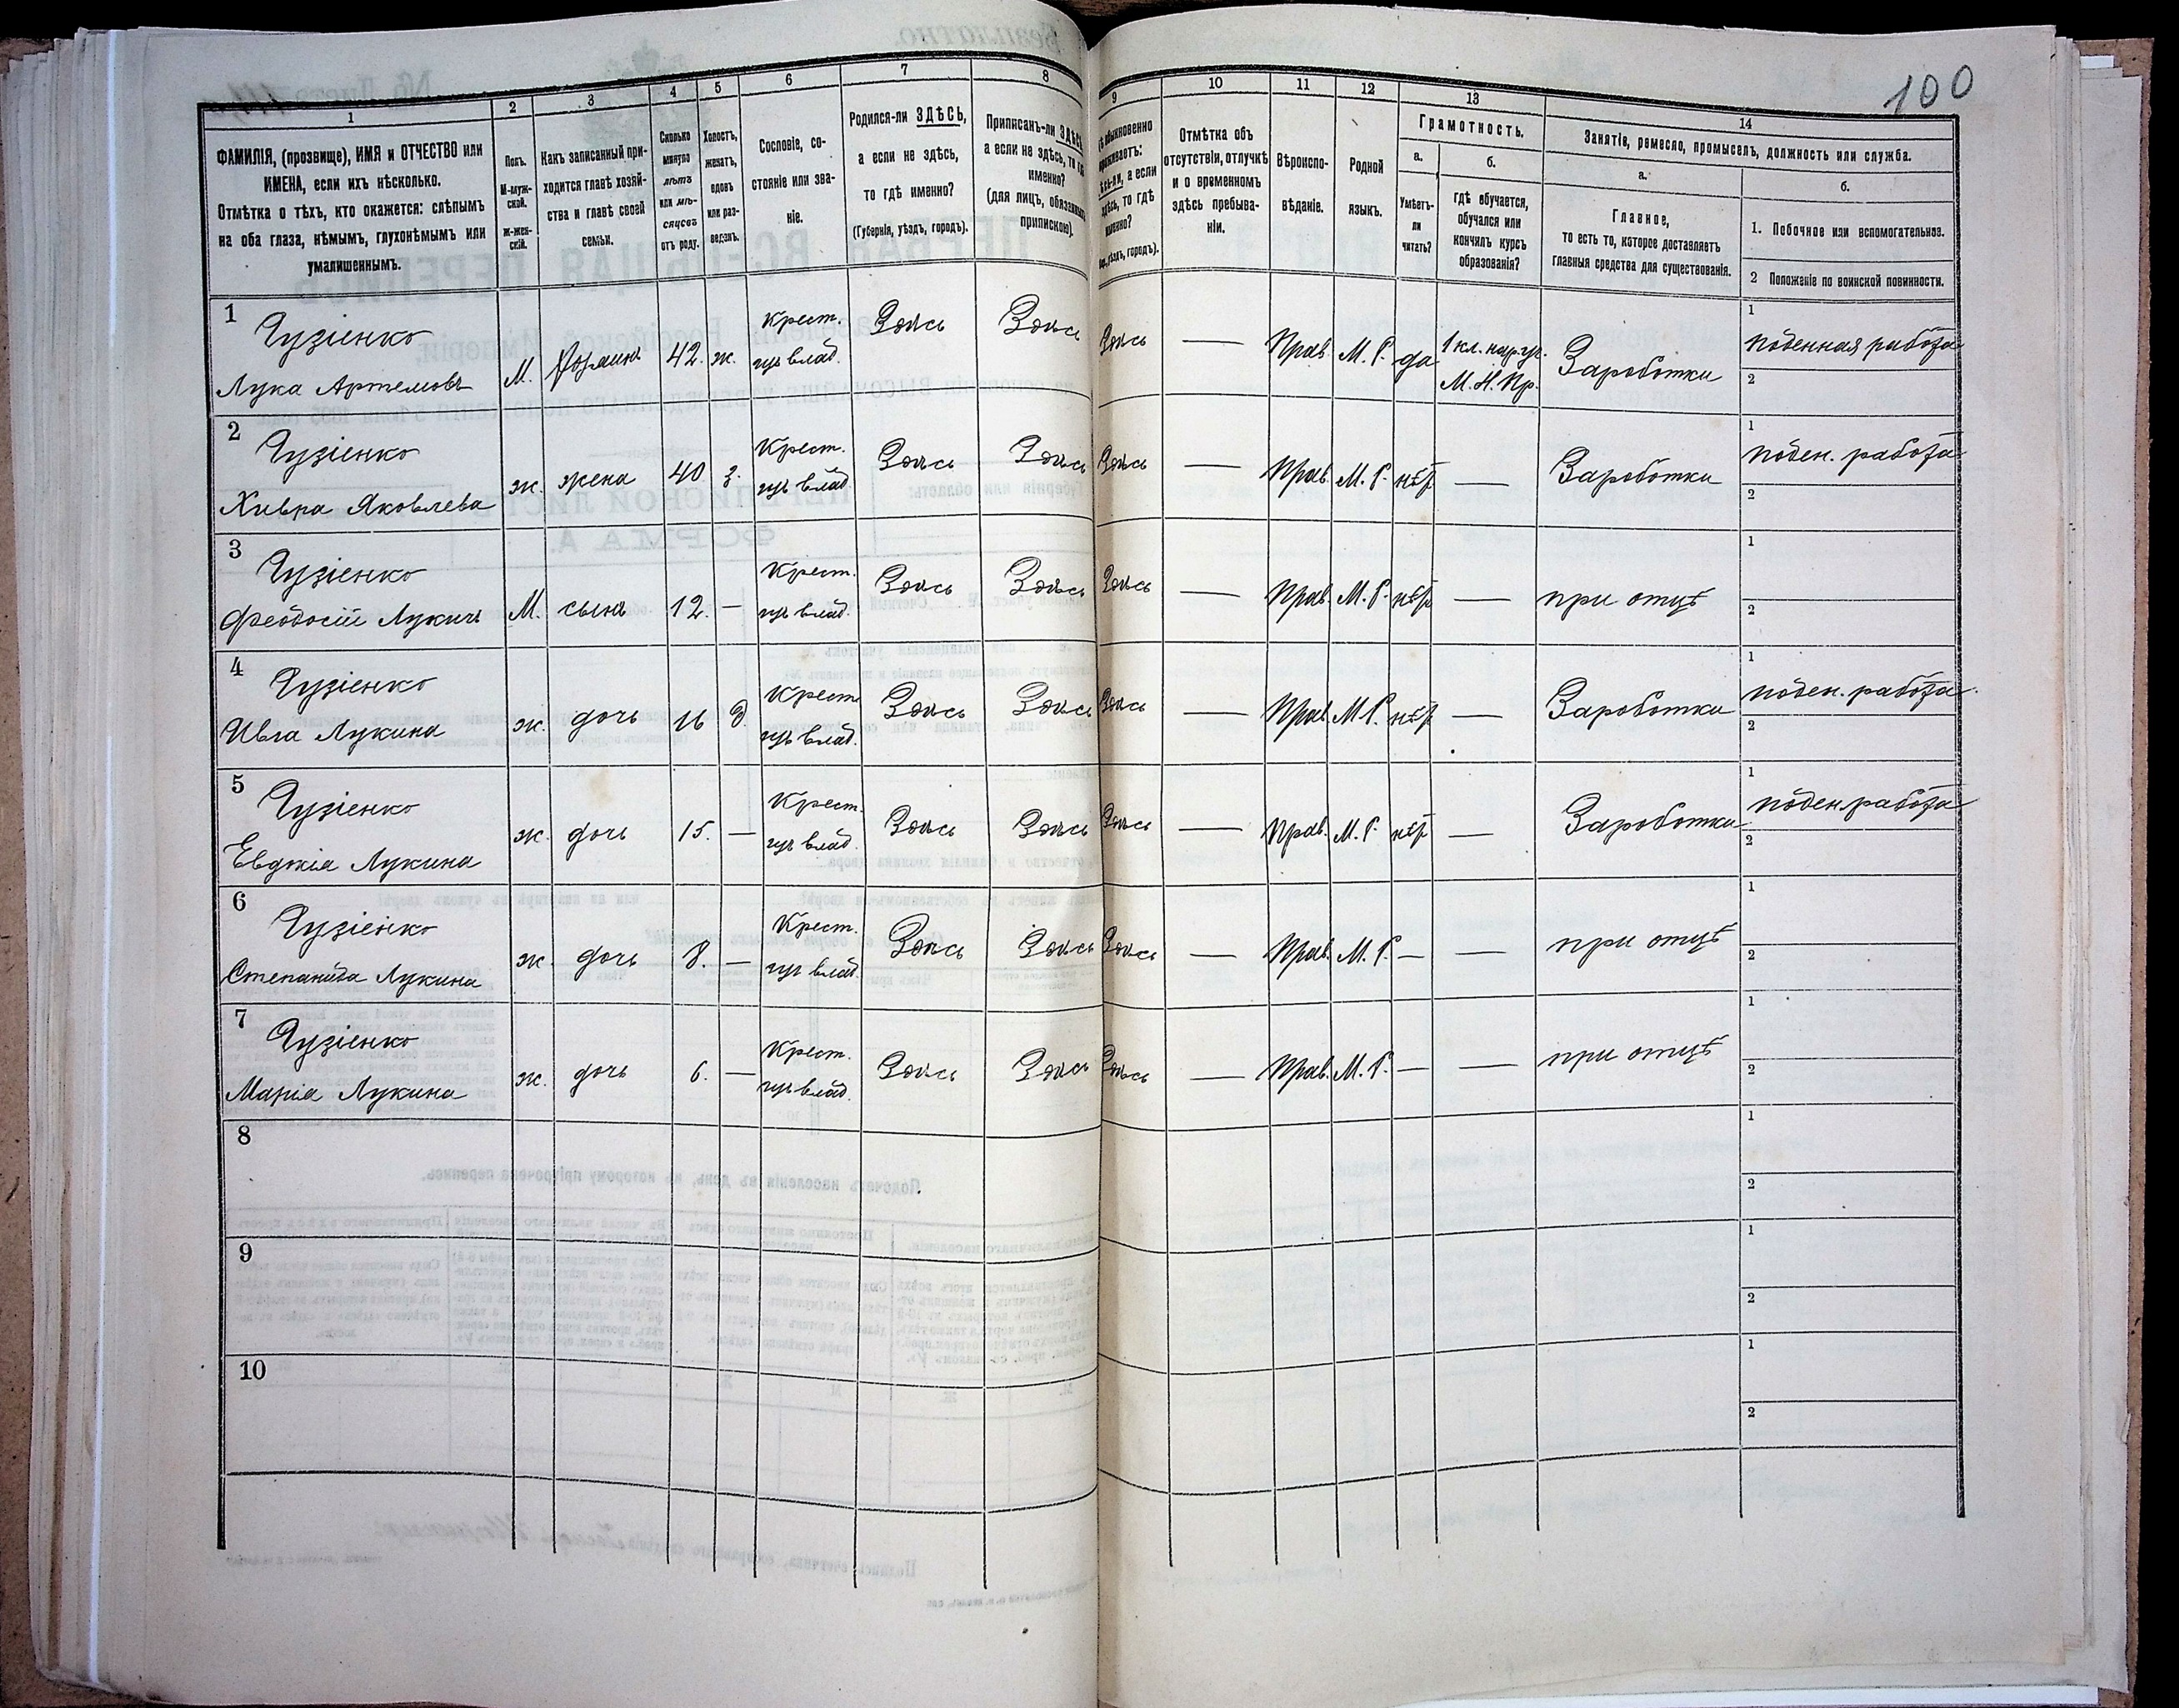 100
1
2
3
4
5
6
7
8
9
10
11
12
13
14
ФАМИЛІЯ, (прозвище), ИМЯ и ОТЧЕСТВО или
ИМЕНА, если ихъ нѣсколько.
Отмѣтка о тѣхъ, кто окажется: слѣпымъ
на оба глаза, нѣмымъ, глухонѣмымъ или
умалишеннымъ.
Полъ.
М-муж-
ской.
Ж-жен-
скій.
Какъ записанный при-
ходится главѣ хозяй-
ства и главѣ своей
семьи.
Сколько
минуло
лѣтъ
или мѣ-
сяцевъ
отъ роду.
Холостъ,
женатъ,
вдовъ
или раз-
веденъ.
Сословіе, со-
стояніе или зва-
ніе.
Родился-ли ЗДѢСЬ,
а если не здѣсь,
то гдѣ именно?
(Губернія, уѣздъ, городъ).
Приписанъ-ли ЗДѢСЬ
а если не здѣсь, то гдѣ
именно?
(для лицъ, обязанныхъ
припискою).
обыкновенно
а если
здѣсь, то гдѣ
именно?
уѣздъ, городъ).
Отмѣтка объ
отсутствіи, отлучкѣ
и о временномъ
здѣсь пребыва-
ніи.
Вѣроиспо-
вѣданіе.
Родной
языкъ.
Грамотность.
а.
Умѣетъ-
ли
читать?
б.
гдѣ обучается,
обучался или
кончилъ курсъ
образованія?
Занятіе, ремесло, промыселъ, должность или служба.
а.
Главное,
то есть то, которое доставляетъ
главныя средства для существованія.
б.
1. Побочное или вспомогательное.
2 Положеніе по воинской повинности.
1
Гузіенко
Лука Артемовъ
М. хозяинъ 42. ж.
Крест.
влад.
Здѣсь Здѣсь Здѣсь — Прав. М. Р. да
1 кл. нар. уч.
М. Н. Пр.
Зароботки
1
поденная работа
2
2
Гузіенко
Хивра Яковлева
ж. жена 40 З.
Крест.
влад.
Здѣсь Здѣсь Здѣсь — Прав. М. Р. нѣт — Зароботки
1
поден. работа
2
3
Гузіенко
Феодосій Лукичъ
М. сынъ 12. —
Крест.
влад.
Здѣсь Здѣсь Здѣсь — Прав. М. Р. нѣт — при отцѣ
1
2
4
Гузіенко
Ивга Лукина
ж. дочь 16 д.
Крест.
влад.
Здѣсь Здѣсь Здѣсь — Прав. М. Р. нѣт — Зароботки
1
поден. работа.
2
5
Гузіенко
Евдокія Лукина
ж. дочь 15. —
Крест.
влад.
Здѣсь Здѣсь Здѣсь — Прав. М. Р. нѣт — Зароботки
1
поден. работа
2
6
Гузіенко
Степанида Лукина
ж. дочь 8. —
Крест.
влад.
Здѣсь Здѣсь Здѣсь — Прав. М. Р. — — при отцѣ
1
2
7
Гузіенко
Марія Лукина
ж. дочь 6. —
Крест.
влад.
Здѣсь Здѣсь Здѣсь — Прав. М. Р. — — при отцѣ
1
2
8
1
2
9
1
2
10
1
2